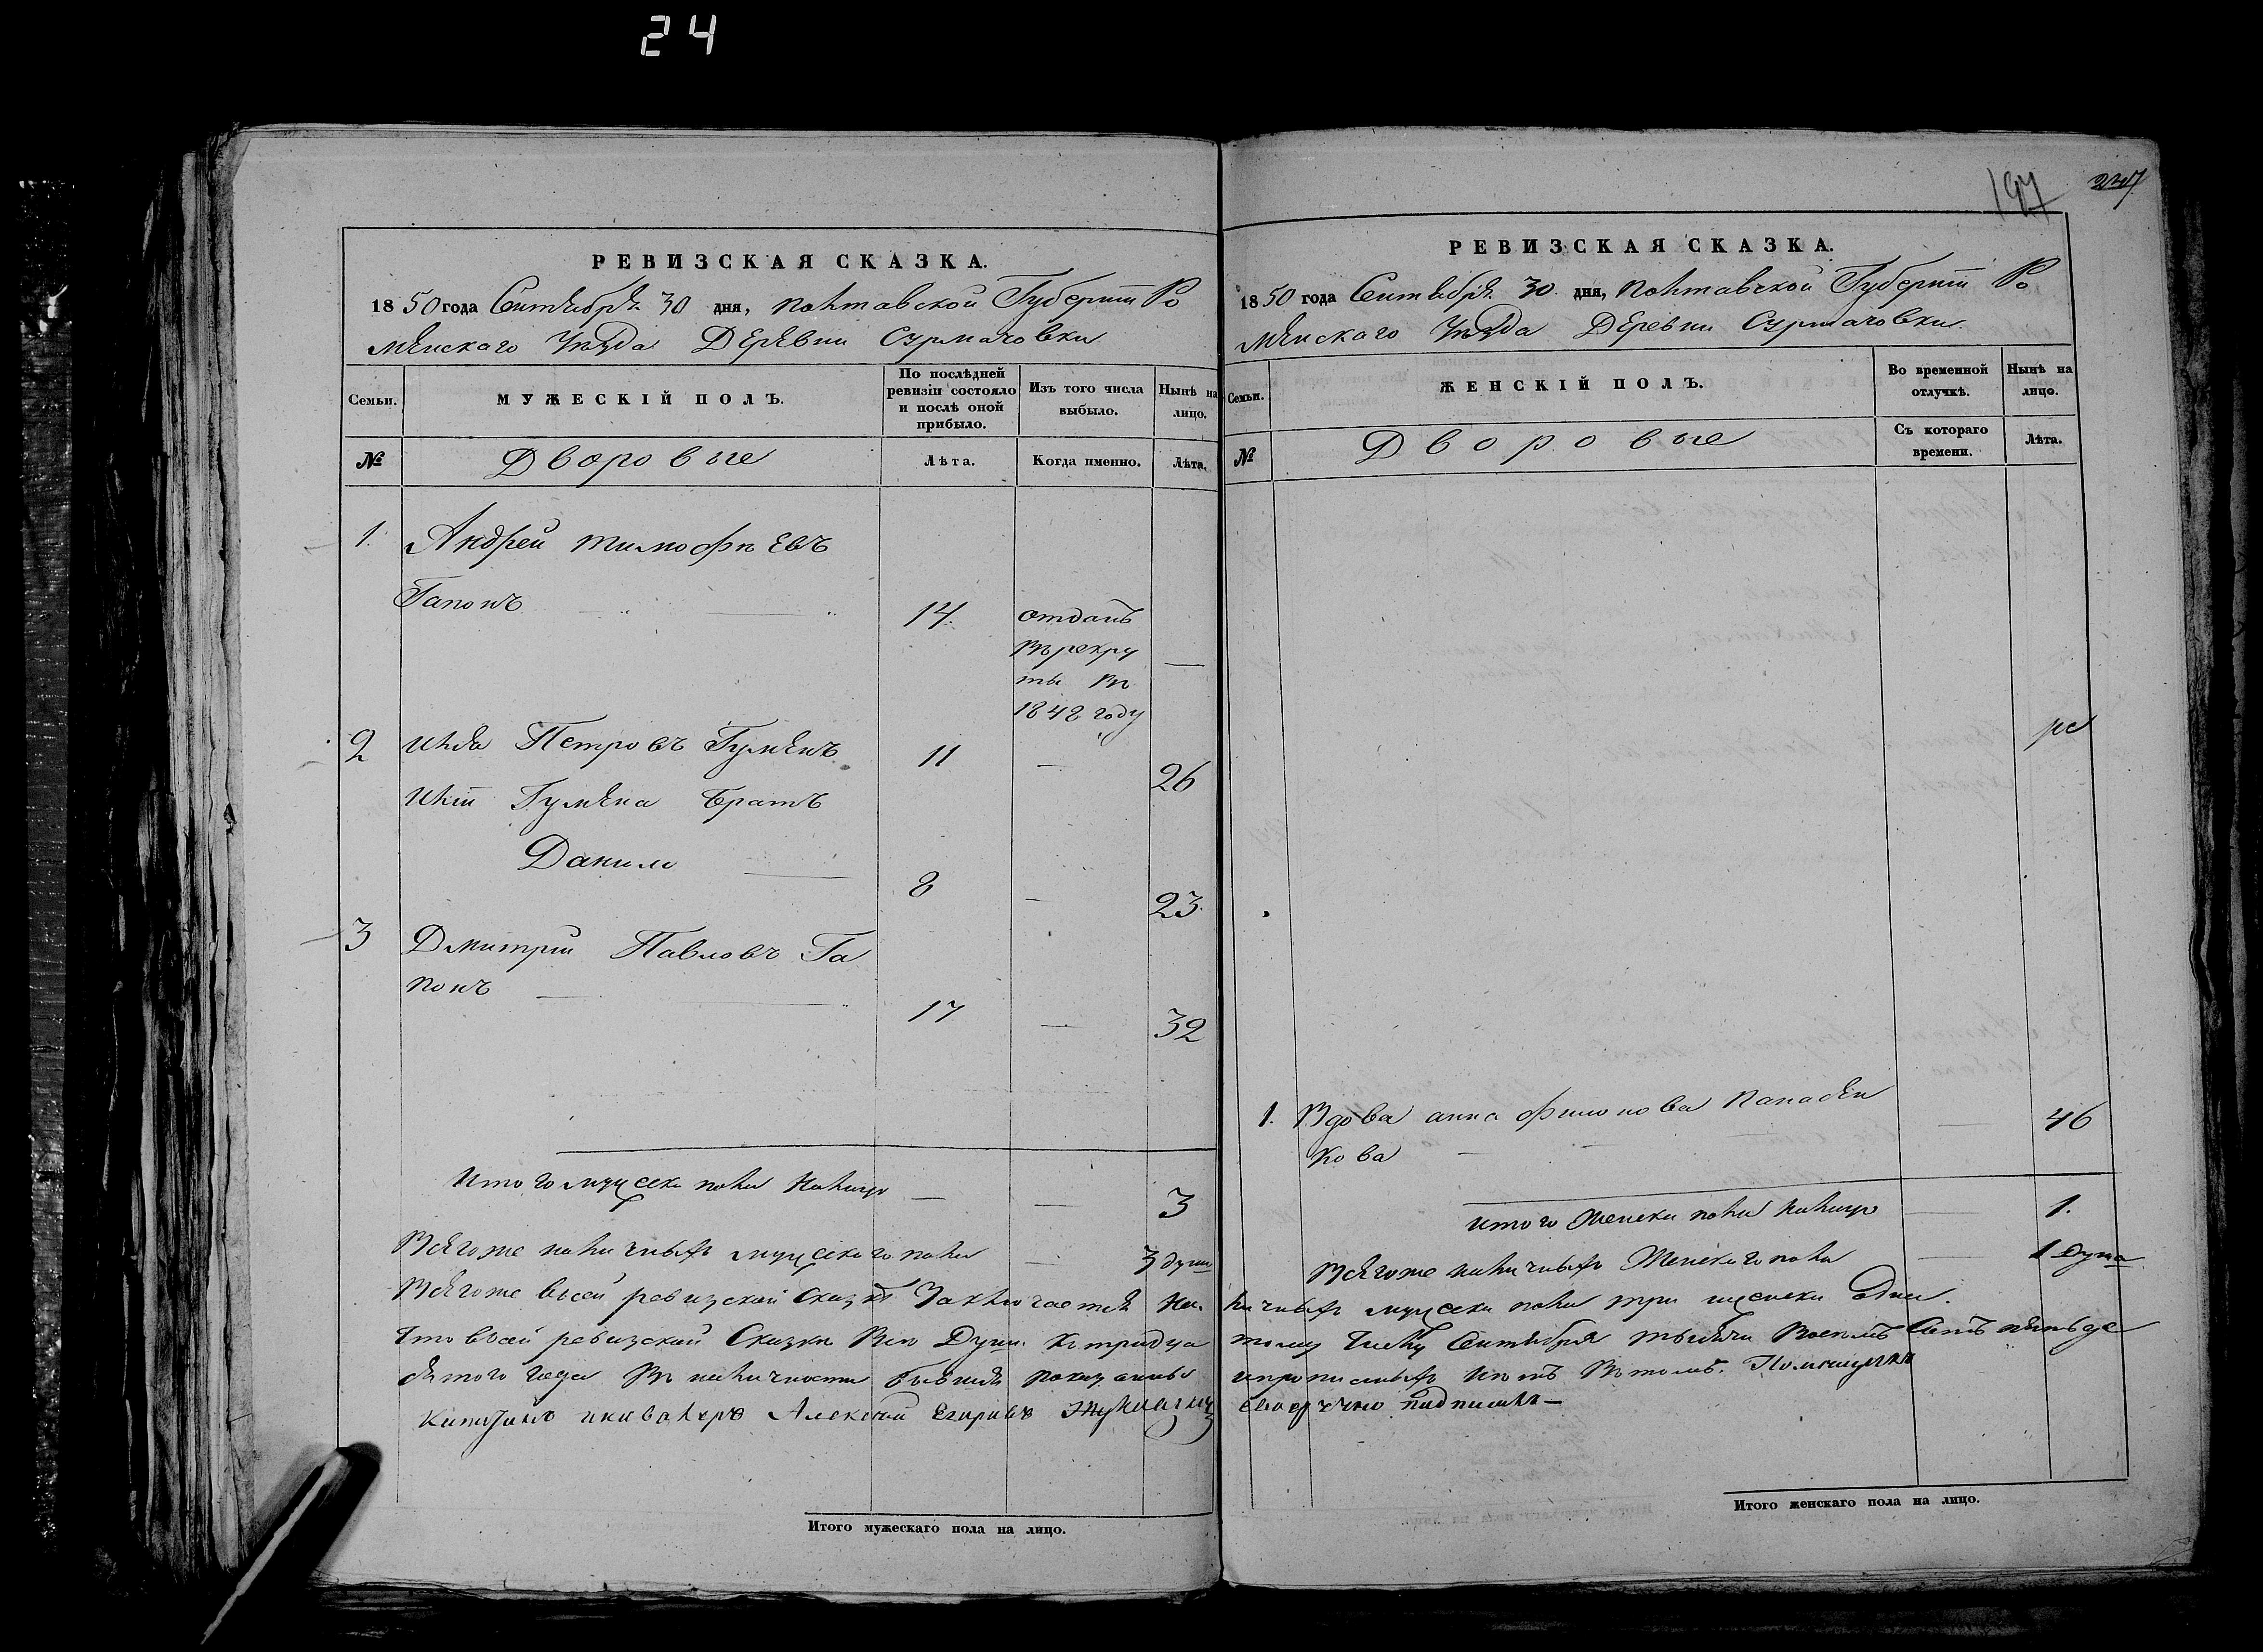 24
197
237
РЕВИЗСКАЯ СКАЗКА.
1850 года Сентября 30 дня, Полтавской Губернiи Ро
менскаго Уѣзда Деревни Сурмачовки
Семьи.
МУЖЕСКІЙ ПОЛЪ.
По послѣдней ревизіи состояло и послѣ оной прибыло.
Изъ того числа выбыло.
Нынѣ на лицо.
№
Дворовые
Лѣта.
Когда именно.
Лѣта.
1. Андрей Тимофѣевъ
Гапонъ 14 отданъ
въ рекру
ты въ
1848 году
2 Илья Петровъ Гуменъ 11 — 26
Ильи Гумена братъ
Данило — 8 — 23.
3 Дмитрiй Павловъ Га
понъ — 17 — 32
Итого мужеска пола налицо — — 3
Всегоже наличныхъ мужескаго пола — 3 души
Всегоже в сей ревизской сказкѣ Заключается на-
Что в сей ревизской Сказки Всѣ Души. К тридца
сятого года въ наличности бывшiя показаны
Капитанъ икавалеръ Алексѣй Егоровъ
Итого мужескаго пола на лицо.
РЕВИЗСКАЯ СКАЗКА.
1850 года Сентября 30 дня, Полтавской Губернiи Ро
менскаго Уѣзда Деревни Сурмачовки.
Семьи.
ЖЕНСКІЙ ПОЛЪ.
Во временной отлучкѣ.
Нынѣ на лицо.
№
Дворовые
Съ котораго времени.
Лѣта.
1. Вдова анна Филонова Панасен
кова — — 46
итого Женска пола налицо — 1.
Всегоже наличныхъ Женскаго пола — 1 душа
личныхъ мужеска пола три женска одна.
тому Числу Сентября тысяча восемъ Сотъ пятьде
и прописныхъ нѣтъ Въ томъ. Помещикъ
своеручно подписалъ —
Итого женскаго пола на лицо.